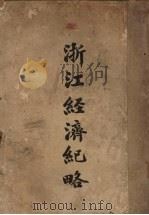 浙江經濟紀略